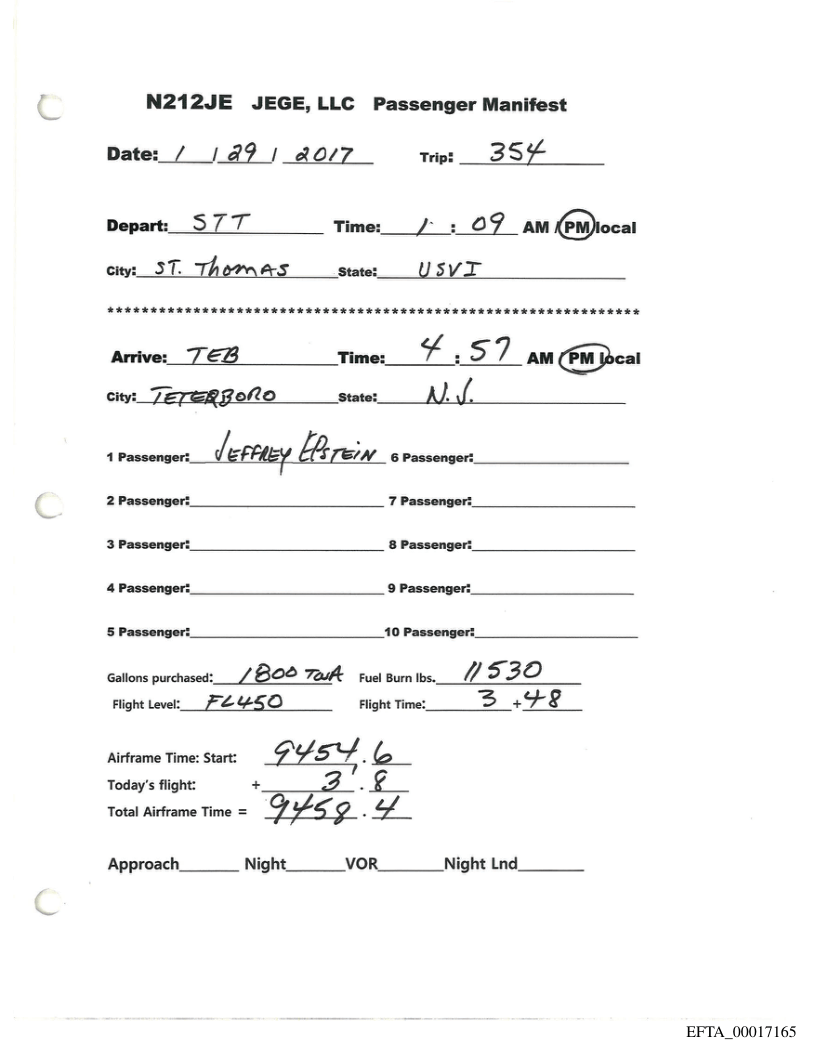 N212JE JEGE, LLC Passenger Manifest
Date: 1 / 29 / 2017 Trip: 354
Depart: STT Time: 1 : 09 AM / PM local
City: ST. THOMAS State: USVI
******************************************************************
Arrive: TEB Time: 4 : 57 AM / PM local
City: TETERBORO State: N.J.
1 Passenger: JEFFREY EPSTEIN 6 Passenger:
2 Passenger: 7 Passenger:
3 Passenger: 8 Passenger:
4 Passenger: 9 Passenger:
5 Passenger: 10 Passenger:
Gallons purchased: 1800 Fuel Burn lbs. 11530
Flight Level: FL450 Flight Time: 3 + 48
Airframe Time: Start: 9454.6
Today's flight: + 3.8
Total Airframe Time = 9458.4
Approach Night VOR Night Lnd
EFTA_00017165